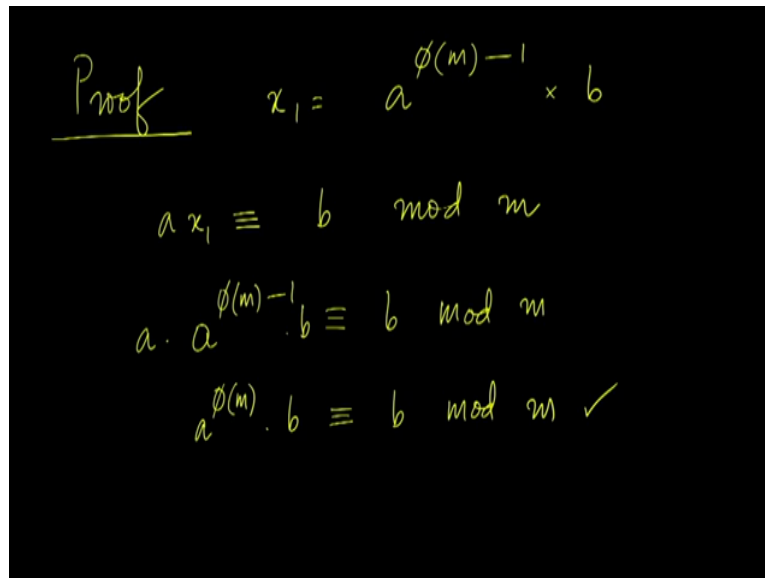 Proof x₁ = a^{ϕ(m)-1} × b
a x₁ ≡ b mod m
a . a^{ϕ(m)-1} . b ≡ b mod m
a^{ϕ(m)} . b ≡ b mod m ✓